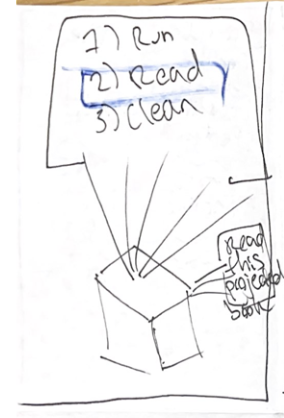 1) Run
2) Read
3) Clean
Read
this
projected
book